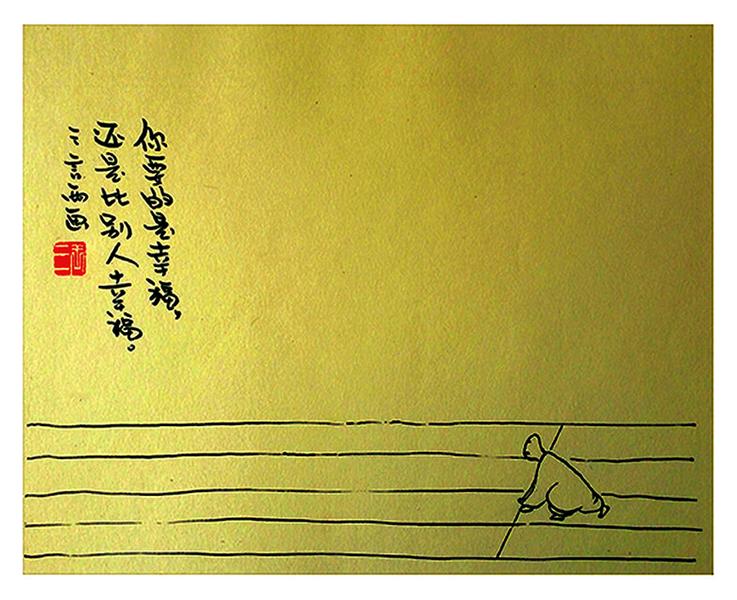 你要的是幸福，
还是比别人幸福。
三言两画